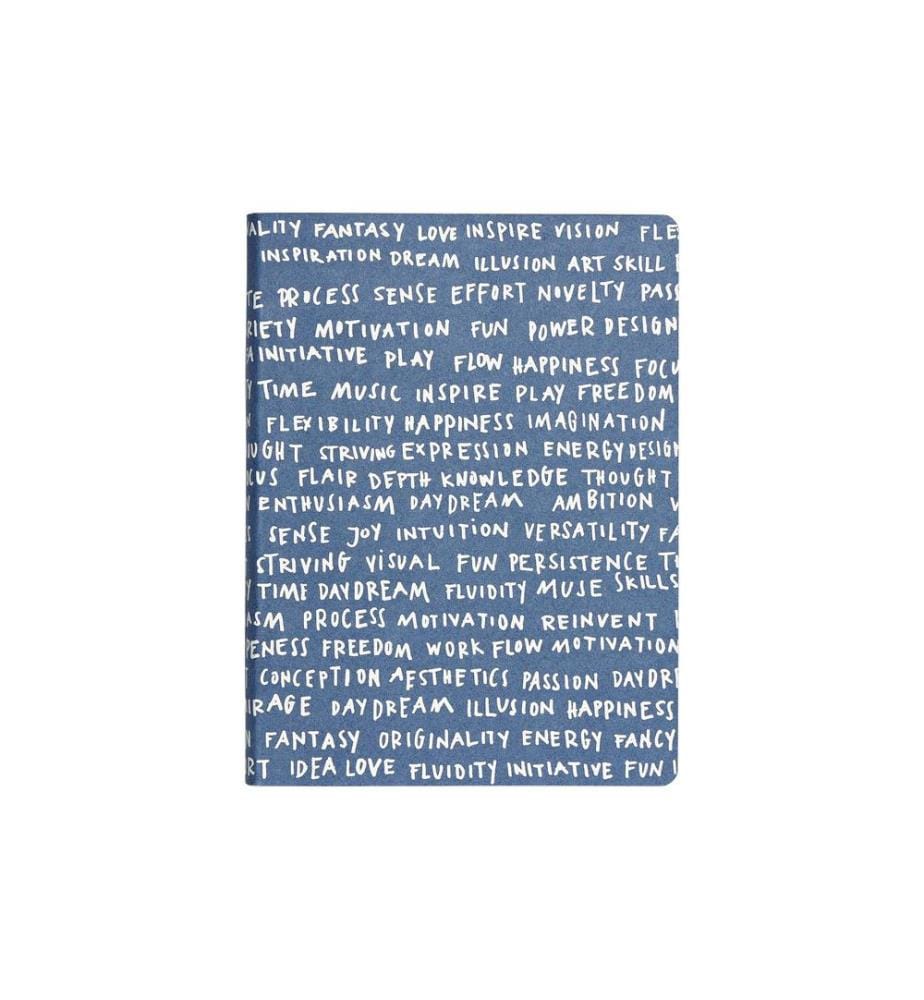 ALITY FANTASY LOVE INSPIRE VISION FLE
INSPIRATION DREAM ILLUSION ART SKILL
TE PROCESS SENSE EFFORT NOVELTY PASS
RIETY MOTIVATION FUN POWER DESIGN
A INITIATIVE PLAY FLOW HAPPINESS FOCU
Y TIME MUSIC INSPIRE PLAY FREEDOM
FLEXIBILITY HAPPINESS IMAGINATION
UGHT STRIVING EXPRESSION ENERGY DESIGN
CUS FLAIR DEPTH KNOWLEDGE THOUGHT
ENTHUSIASM DAYDREAM AMBITION V
S SENSE JOY INTUITION VERSATILITY FA
STRIVING VISUAL FUN PERSISTENCE T
Y TIME DAYDREAM FLUIDITY MUSE SKILLS
ASM PROCESS MOTIVATION REINVENT
PENESS FREEDOM WORK FLOW MOTIVATION
T CONCEPTION AESTHETICS PASSION DAYDR
RAGE DAYDREAM ILLUSION HAPPINESS
FANTASY ORIGINALITY ENERGY FANCY
RT IDEA LOVE FLUIDITY INITIATIVE FUN